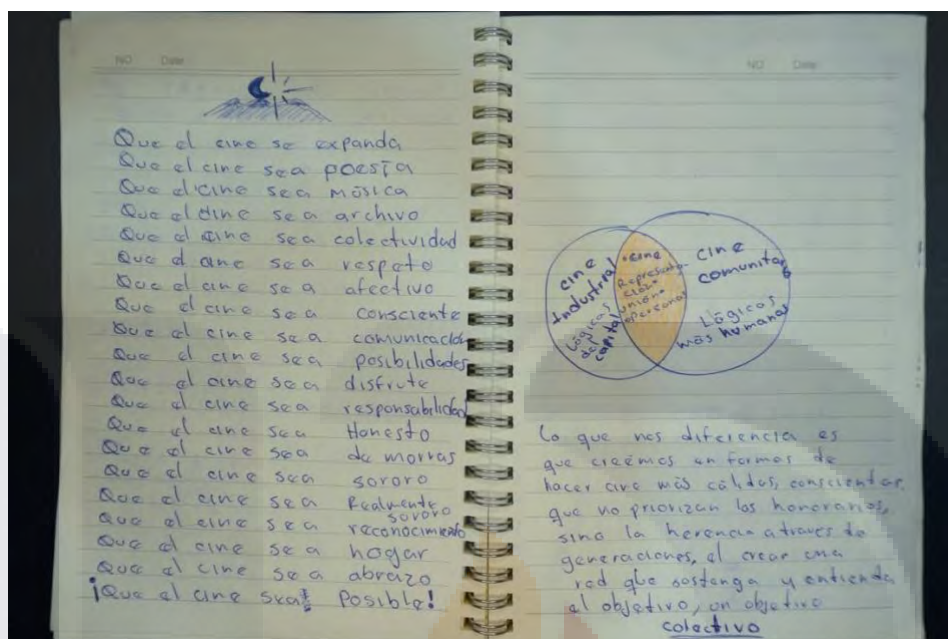 NO Date
Que el cine se expanda
Que el cine sea poesía
Que el cine sea música
Que el cine sea archivo
Que el cine sea colectividad
Que el cine sea respeto
Que el cine sea afectivo
Que el cine sea consciente
Que el cine sea comunicación
Que el cine sea posibilidades
Que el cine sea disfrute
Que el cine sea responsabilidad
Que el cine sea Honesto
Que el cine sea de morras
Que el cine sea sororo
Que el cine sea Realmente
sororo
Que el cine sea reconocimiento
Que el cine sea hogar
Que el cine sea abrazo
¡Que el cine sea Posible!
NO Date
cine
Industrial
Lógicas
del
capital
cine
Representa-
ción
unión
personas
cine
comunitario
Lógicas
más humanas
Lo que nos diferencia es
que creémos en formas de
hacer cine más cálidas, conscientes,
que no priorizan los honorarios,
sino la herencia a traves de
generaciones, el crear una
red que sostenga y entienda
el objetivo, un objetivo
colectivo